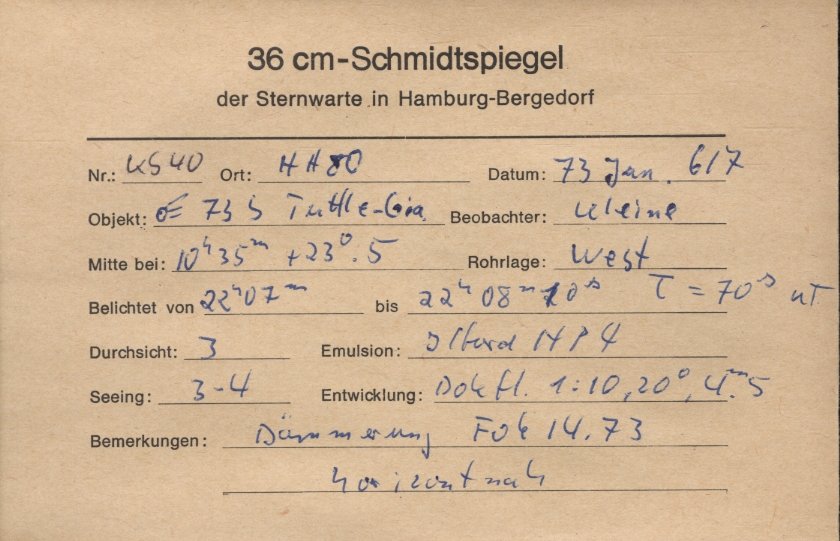 36 cm-Schmidtspiegel
der Sternwarte in Hamburg-Bergedorf
Nr.: KS40 Ort: HH80 Datum: 73 Jan. 6/7
Objekt: 73 b Tuttle-Gia. Beobachter: Kleine
Mitte bei: 10ʰ35ᵐ +23⁰.5 Rohrlage: West
Belichtet von 22ʰ07ᵐ bis 22ʰ08ᵐ10ˢ T = 70ˢ UT
Durchsicht: 3 Emulsion: Ilford HP4
Seeing: 3-4 Entwicklung: Dokfl. 1:10, 20⁰, 4ᵐ.5
Bemerkungen: Dämmerung Fok 14.73
horizontnah